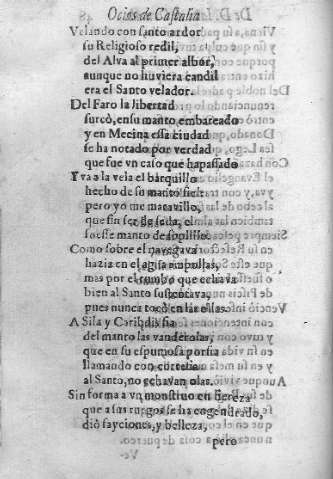 Ocios de Castalia
Velando con santo ardor
su Religioso redil,
del Alva al primer albor,
aunque no huviera candil
era el Santo velador.
Del Faro la libertad
surcò, en su manto embarcado
y en Mecina essa ciudad
se ha notado por verdad
que fue vn caso que ha passado
Y va a la vela el barquillo
hecho de su manto fiel:
pero yo me maravillo,
que sin ser de seda, el
fuesse manto de soplillo.
Como sobre el navegava
hazia en el agua ampollas,
mas por el rumbo que echava
bien al Santo sustentava,
pues nunca tocò en las ollas.
A Sila y Caribdis fia
del manto las vanderolas,
que en su espumosa porfia
llamando con cortesia
al Santo, no echavan olas.
Sin forma a vn monstruo en fiereza
que a sus ruegos se ha engendrado,
diò fayciones, y belleza,
pero